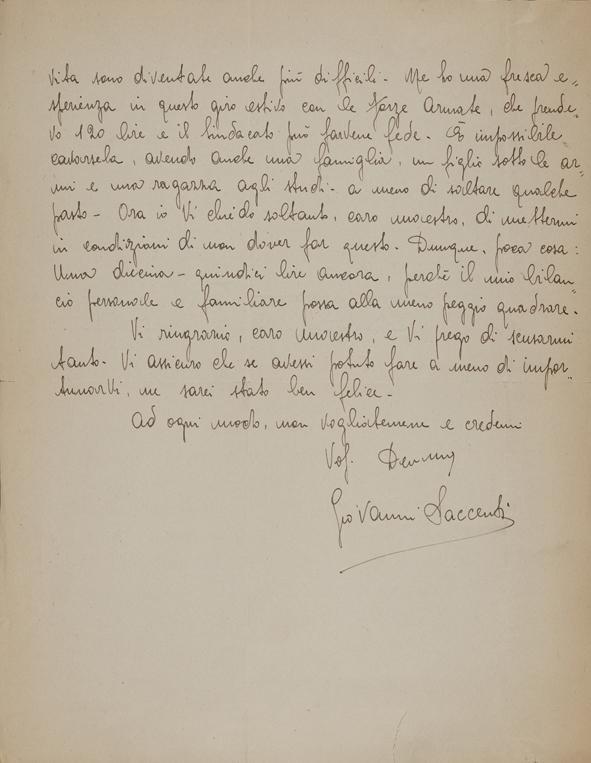 vita sono diventate anche più difficili. Ne ho una fresca e=
sperienza in questo giro estivo con le Forze Armate, che prende=
vo 120 lire e il Sindacato può farvene fede. È impossibile
cavarsela, avendo anche una famiglia, un figlio sotto le ar=
mi e una ragazza agli studi. a meno di saltare qualche
pasto. Ora io Vi chiedo soltanto, caro maestro, di mettermi
in condizioni di non dover far questo. Dunque, poca cosa:
Una diecina - quindici lire ancora, perché il mio bilan=
cio personale e familiare possa alla meno peggio quadrare.
Vi ringrazio, caro maestro, e Vi prego di scusarmi
tanto. Vi assicuro che se avessi potuto fare a meno di impor=
tunarVi, ne sarei stato ben felice.
Ad ogni modo, non vogliatemene e credemi
Vos. Dev.mo
Giovanni Saccenti